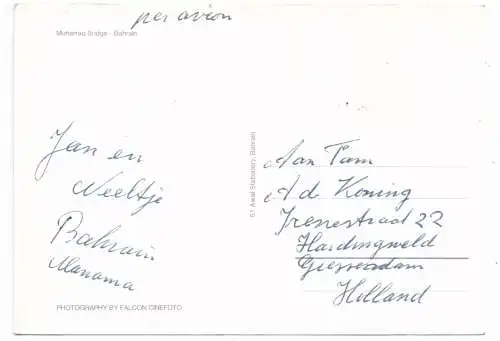 per avion
Muharraq Bridge - Bahrain
Jan en
Neeltje
Bahrain
Manama
PHOTOGRAPHY BY FALCON CINEFOTO
Awal Stationery, Bahrain
Aan Fam
A d Koning
Irenestraat 22
Hardingsveld
Giessendam
Holland